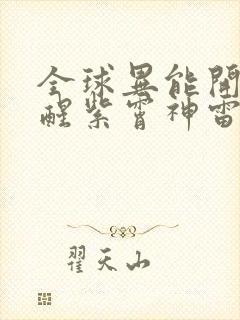 全球異能開
醒紫霄神雷
翟天山